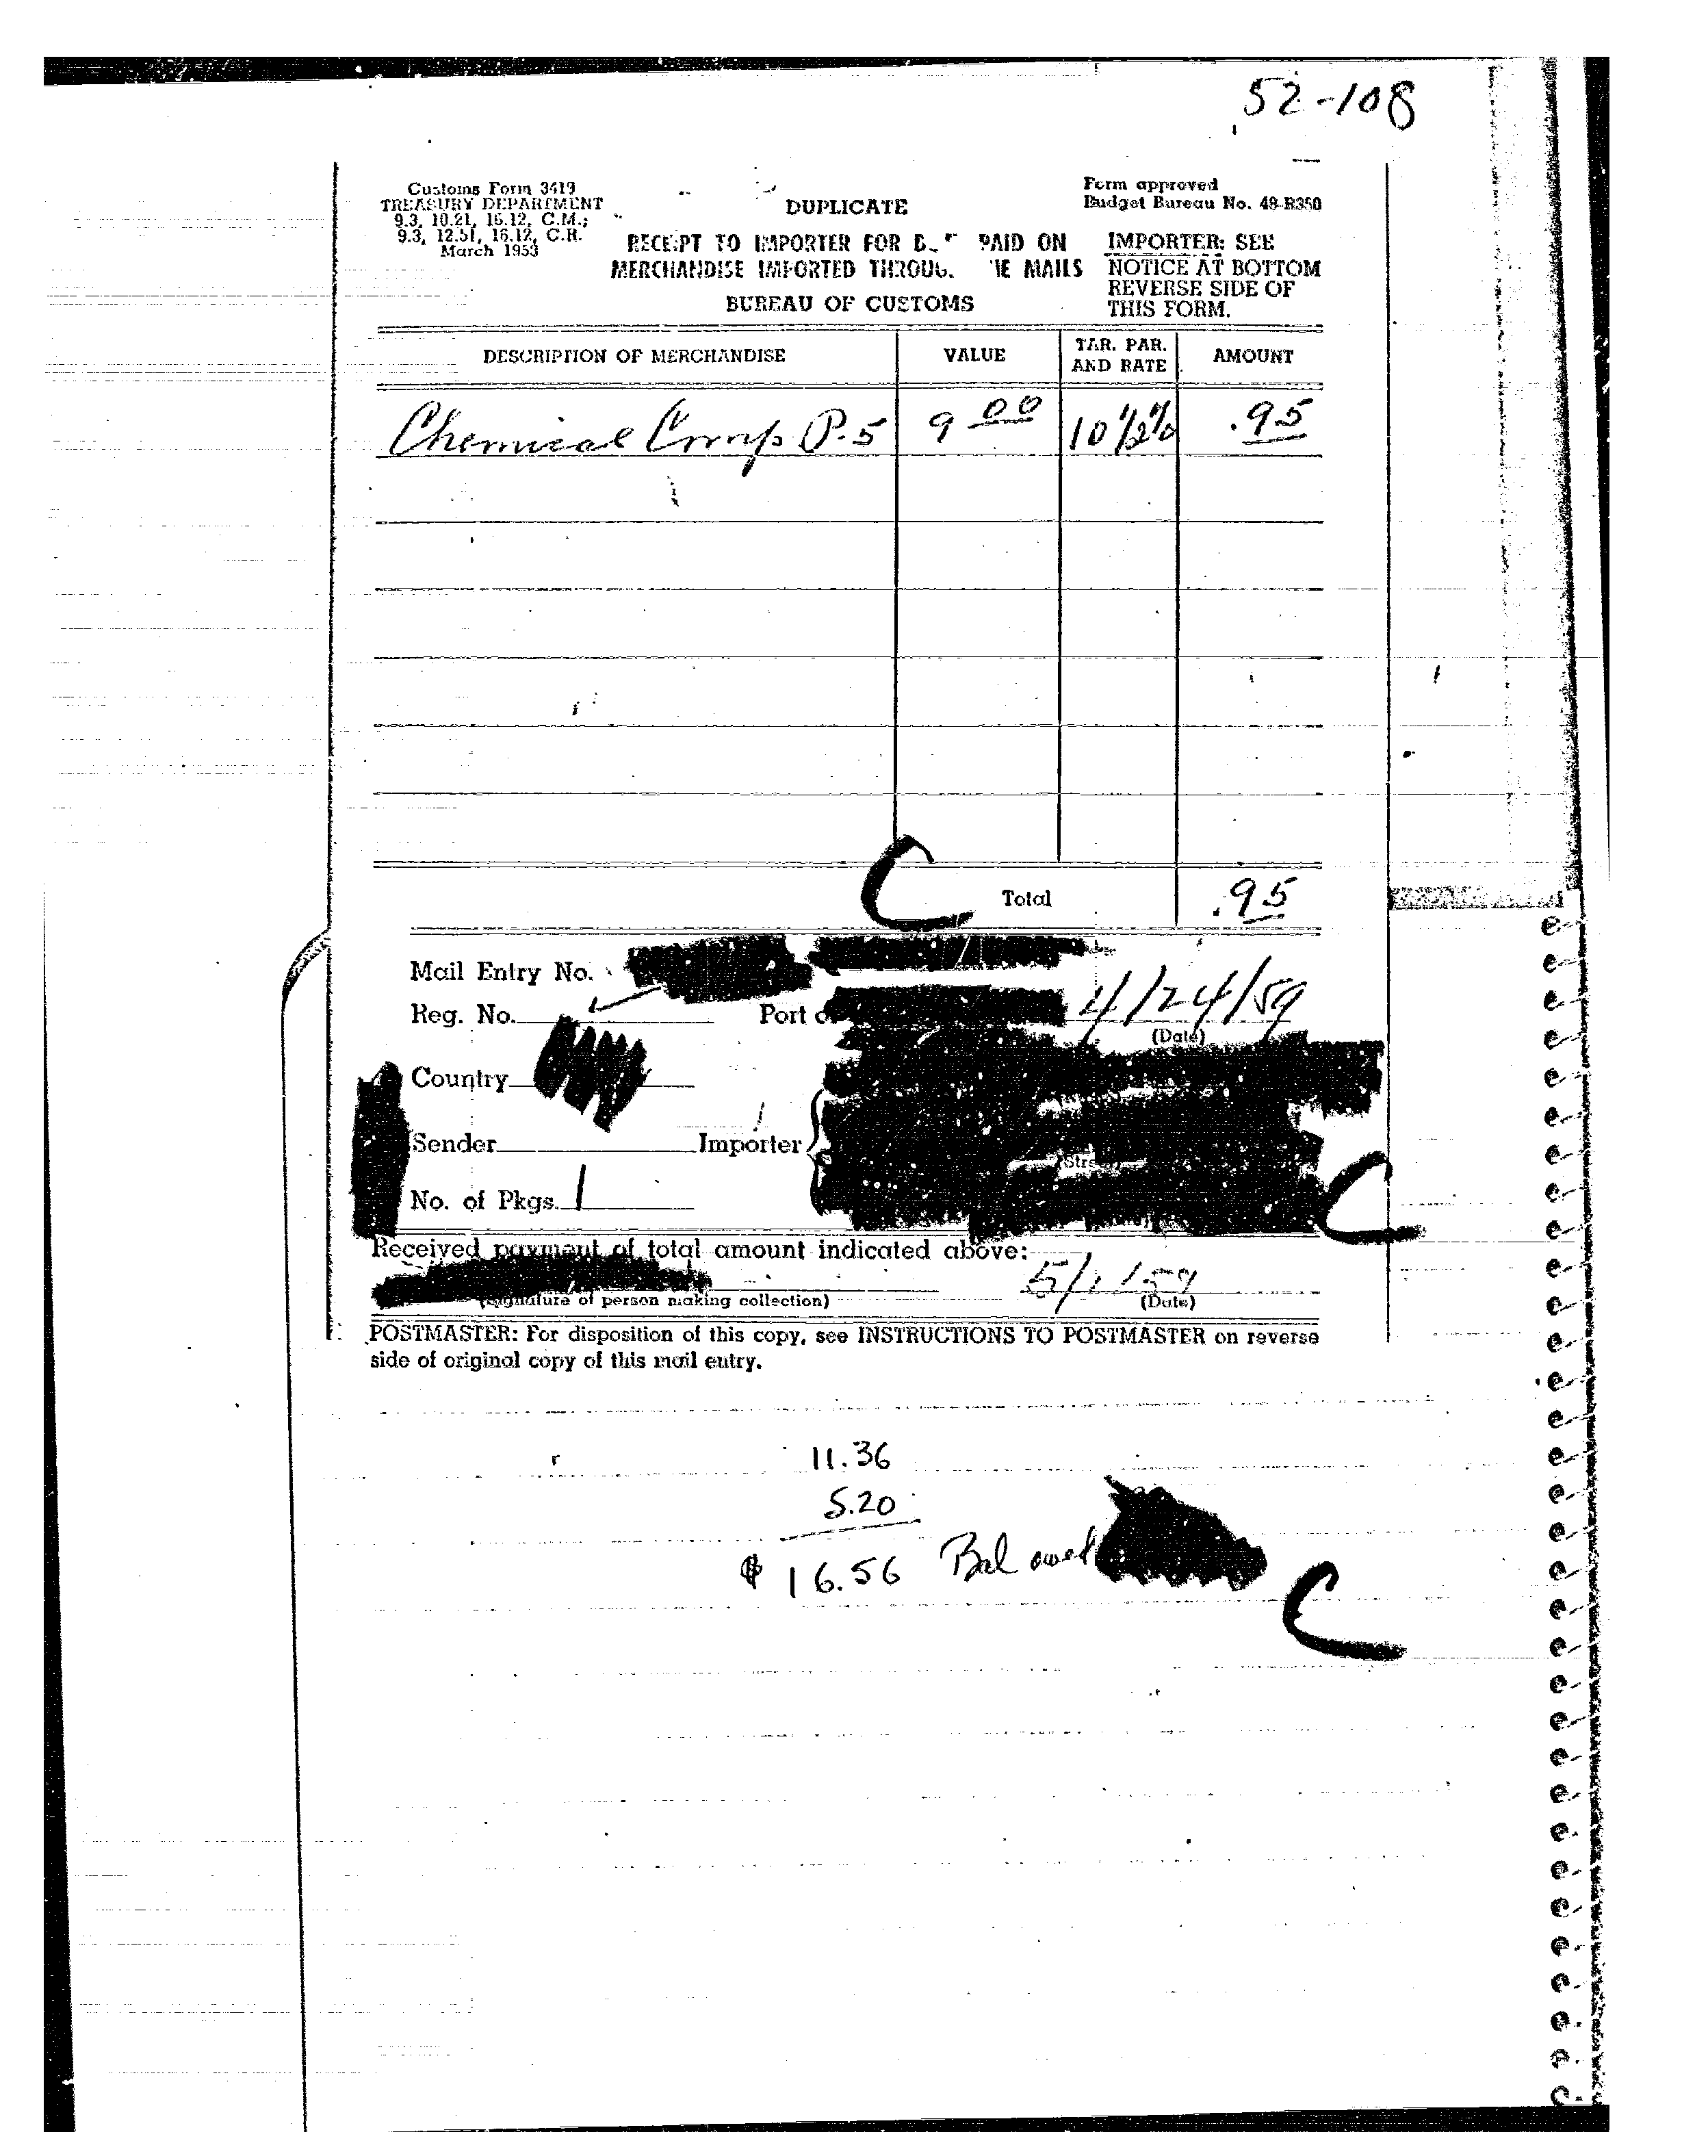 52-108
Customs Form 3419
TREASURY DEPARTMENT
9.3, 10.21, 16.12, C.M.;
9.3, 12.51, 16.12, C.R.
March 1953
DUPLICATE
RECEIPT TO IMPORTER FOR D PAID ON
MERCHANDISE IMPORTED THROUG HE MAILS
BUREAU OF CUSTOMS
Form approved
Budget Bureau No. 48-R350
IMPORTER: SEE
NOTICE AT BOTTOM
REVERSE SIDE OF
THIS FORM.
DESCRIPTION OF MERCHANDISE VALUE TAR. PAR. AND RATE AMOUNT
Chemical Comp P-5 9 00 10 1/2% .95
Total .95
Mail Entry No.
Reg. No. Port of 4/24/59
(Date)
Country
Sender Importer
(Street)
No. of Pkgs. 1
Received payment of total amount indicated above:
5/1/59
(Signature of person making collection) (Date)
POSTMASTER: For disposition of this copy, see INSTRUCTIONS TO POSTMASTER on reverse
side of original copy of this mail entry.
11.36
5.20
$ 16.56 Bal owed
C
C
C